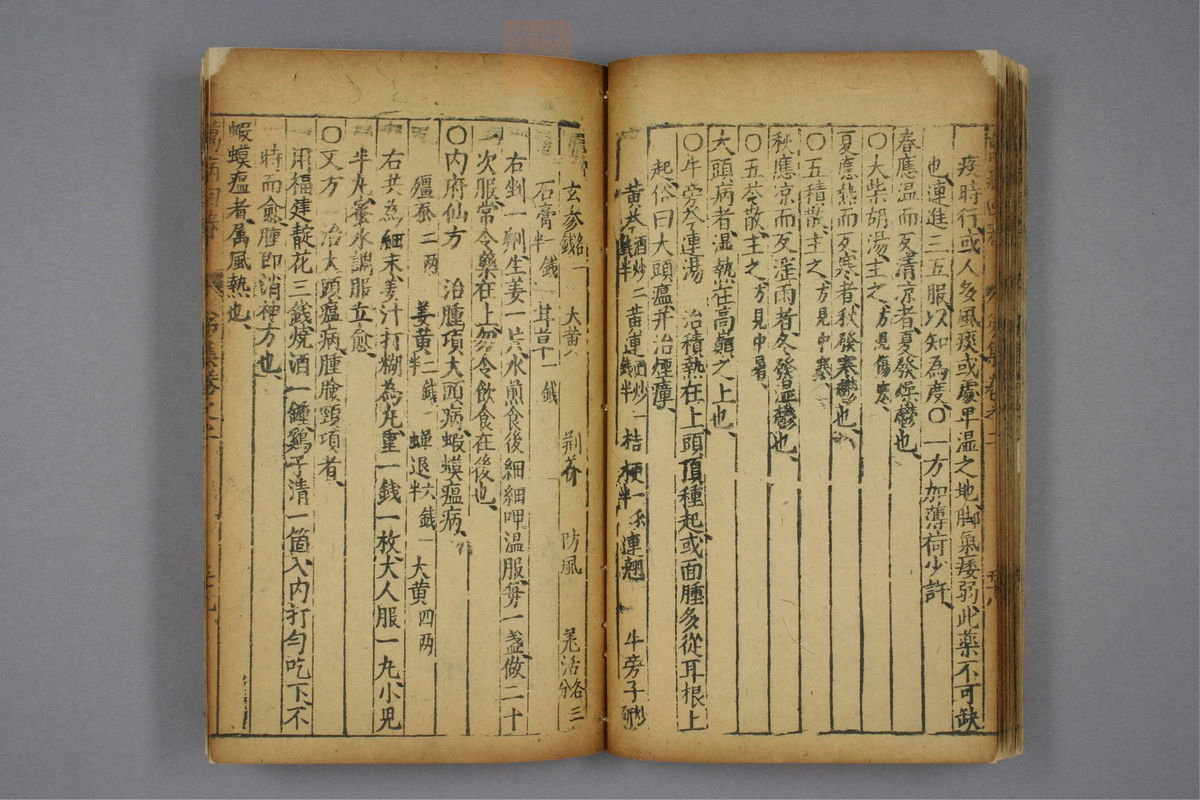 疫時行或人多風痰或處卑濕之地脚氣痿弱此藥不可缺
也連進三五服以知為度〇一方加薄荷少許
春應温而反清凉者夏發燥欝也
〇大柴胡湯主之方見傷寒
夏應熱而反寒者秋發寒欝也
〇五積散主之方見中寒
秋應凉而反滛雨者冬發濕欝也
〇五苓散主之方見中暑
大頭病者濕熱在高巔之上也
〇牛旁芩連湯 治積熱在上頭頂種起或面腫多從耳根上
起俗曰大頭瘟并治煙瘴
黄芩酒炒二錢半 黄連酒炒一錢半 桔梗一錢半 連翹 牛旁子炒研
玄參各一錢 大黄 荆芥 防風 羌活各三分
石膏一錢半 甘草一錢
右剉一劑生姜一片水煎食後細細呷温服毎一盞做二十
次服常令藥在上勿令飲食在後也
〇内府仙方 治腫項大頭病蝦蟆瘟病
殭蚕二兩 姜黄二錢半 蟬退六錢半 大黄四兩
右共為細末姜汁打糊為丸重一錢一枚大人服一丸小児
半丸蜜水調服立愈
〇又方 治大頭瘟病腫臉頸項者
用福建靛花三錢焼酒一鍾鷄子清一箇入内打匀吃下不
時而愈腫即消神方也
蝦蟆瘟者属風熱也
萬病回春